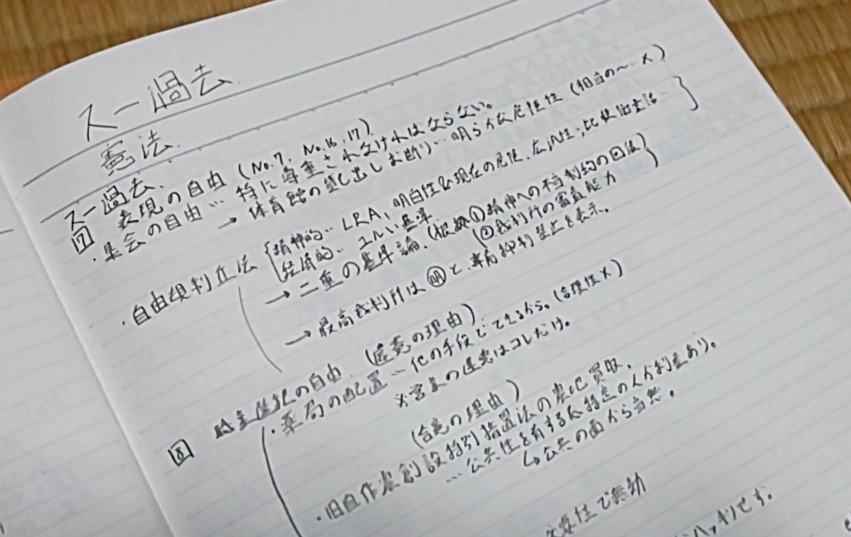 スー過去
憲法.
スー過去.
17 表現の自由 (No.7, No.16, 17)
・集会の自由… 特に尊重されなければならない。
→ 体育館の貸し出しお断り… 明らかな危険性 (相当の〜 ×)
・自由規制立法 精神的… LRA, 明白性&現在の危険, 広汎性,比較衡量論…
経済的… ユルい基準
→ 二重の基準論. (根拠①精神への不当制約の回復
②裁判所の審査能力
→ 最高裁判所は明と、事前抑制禁止を表示。
8 職業選択の自由 (違憲の理由)
・薬局の配置… 他の手段でできるから。(合理性×)
※営業の違憲はコレだけ。
(合憲の理由)
・旧自作農創設特別措置法の農地買収.
… 公共性を有する不特定の人が利益あり。
↳公共の面から当然。
必要性で無効
ハッキリせず。